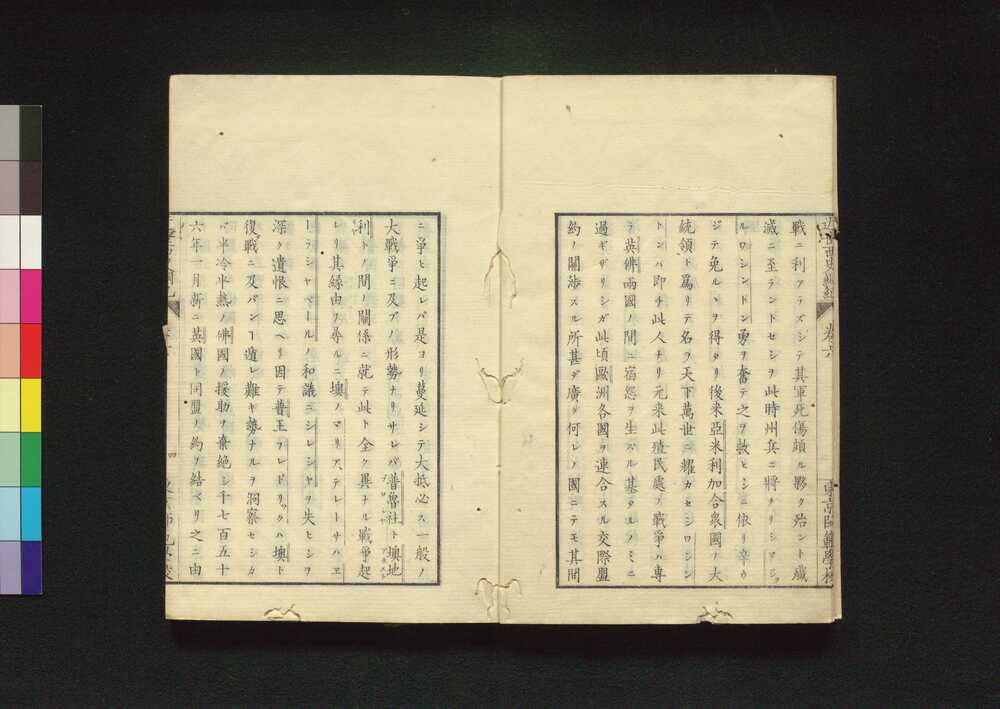 卷六
戰ニ利アラズシテ其軍死傷頗ル夥ク殆ント殲
滅ニ至ラントセシヲ此時州兵ニ將タリシヨジ
ルワシントン勇ヲ奮テ之ヲ救ヒシニ依リ辛ウ
ジテ免ルヽヲ得タリ後来亞米利加合衆國ノ大
統領ト爲リテ名ヲ天下萬世ニ耀カセシワシン
トンハ即チ此人ナリ元来此殖民處ノ戰爭ハ專
ラ英佛兩國ノ間ニ宿怨ヲ生ズル基タルノミニ
過ギザリシガ此頃歐洲各國ヲ連合スル交際盟
約ノ關渉スル所甚ダ廣ク何レノ國ニテモ其間
ニ爭ヒ起レバ是ヨリ蔓延シテ大抵必ス一般ノ
大戰爭ニ及ブノ形勢ナリサレバ普魯社ト墺地
利トノ間ノ關係ニ就テ此ト全ク異ナル戰爭起
レリ其縁由ヲ尋ルニ墺ノマリア、テレトサハヱ
ーラシヤペールノ和議ニシレシヤヲ失ヒシヲ
深ク遺恨ニ思ヘリ因テ普王フレドリックハ墺ト
復戰ニ及バンヿ遁レ難キ勢ナルヲ洞察セシカ
バ半冷半熱ノ佛國ノ援助ヲ棄絶シ千七百五十
六年一月新ニ英國ト同盟ノ約ヲ結ベリ之ニ由
四